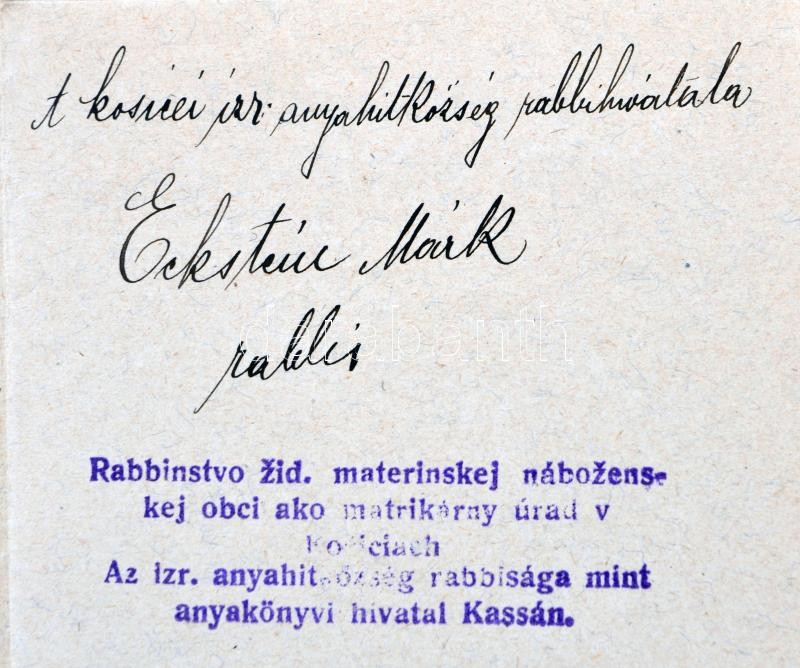 A kosicei izr. anyahitközség rabbihivatala
Eckstein Márk
rabbi
darabanth
Rabbinstvo žid. materinskej nábožens-
kej obci ako matrikárny úrad v
Košiciach
Az izr. anyahitközség rabbisága mint
anyakönyvi hivatal Kassán.